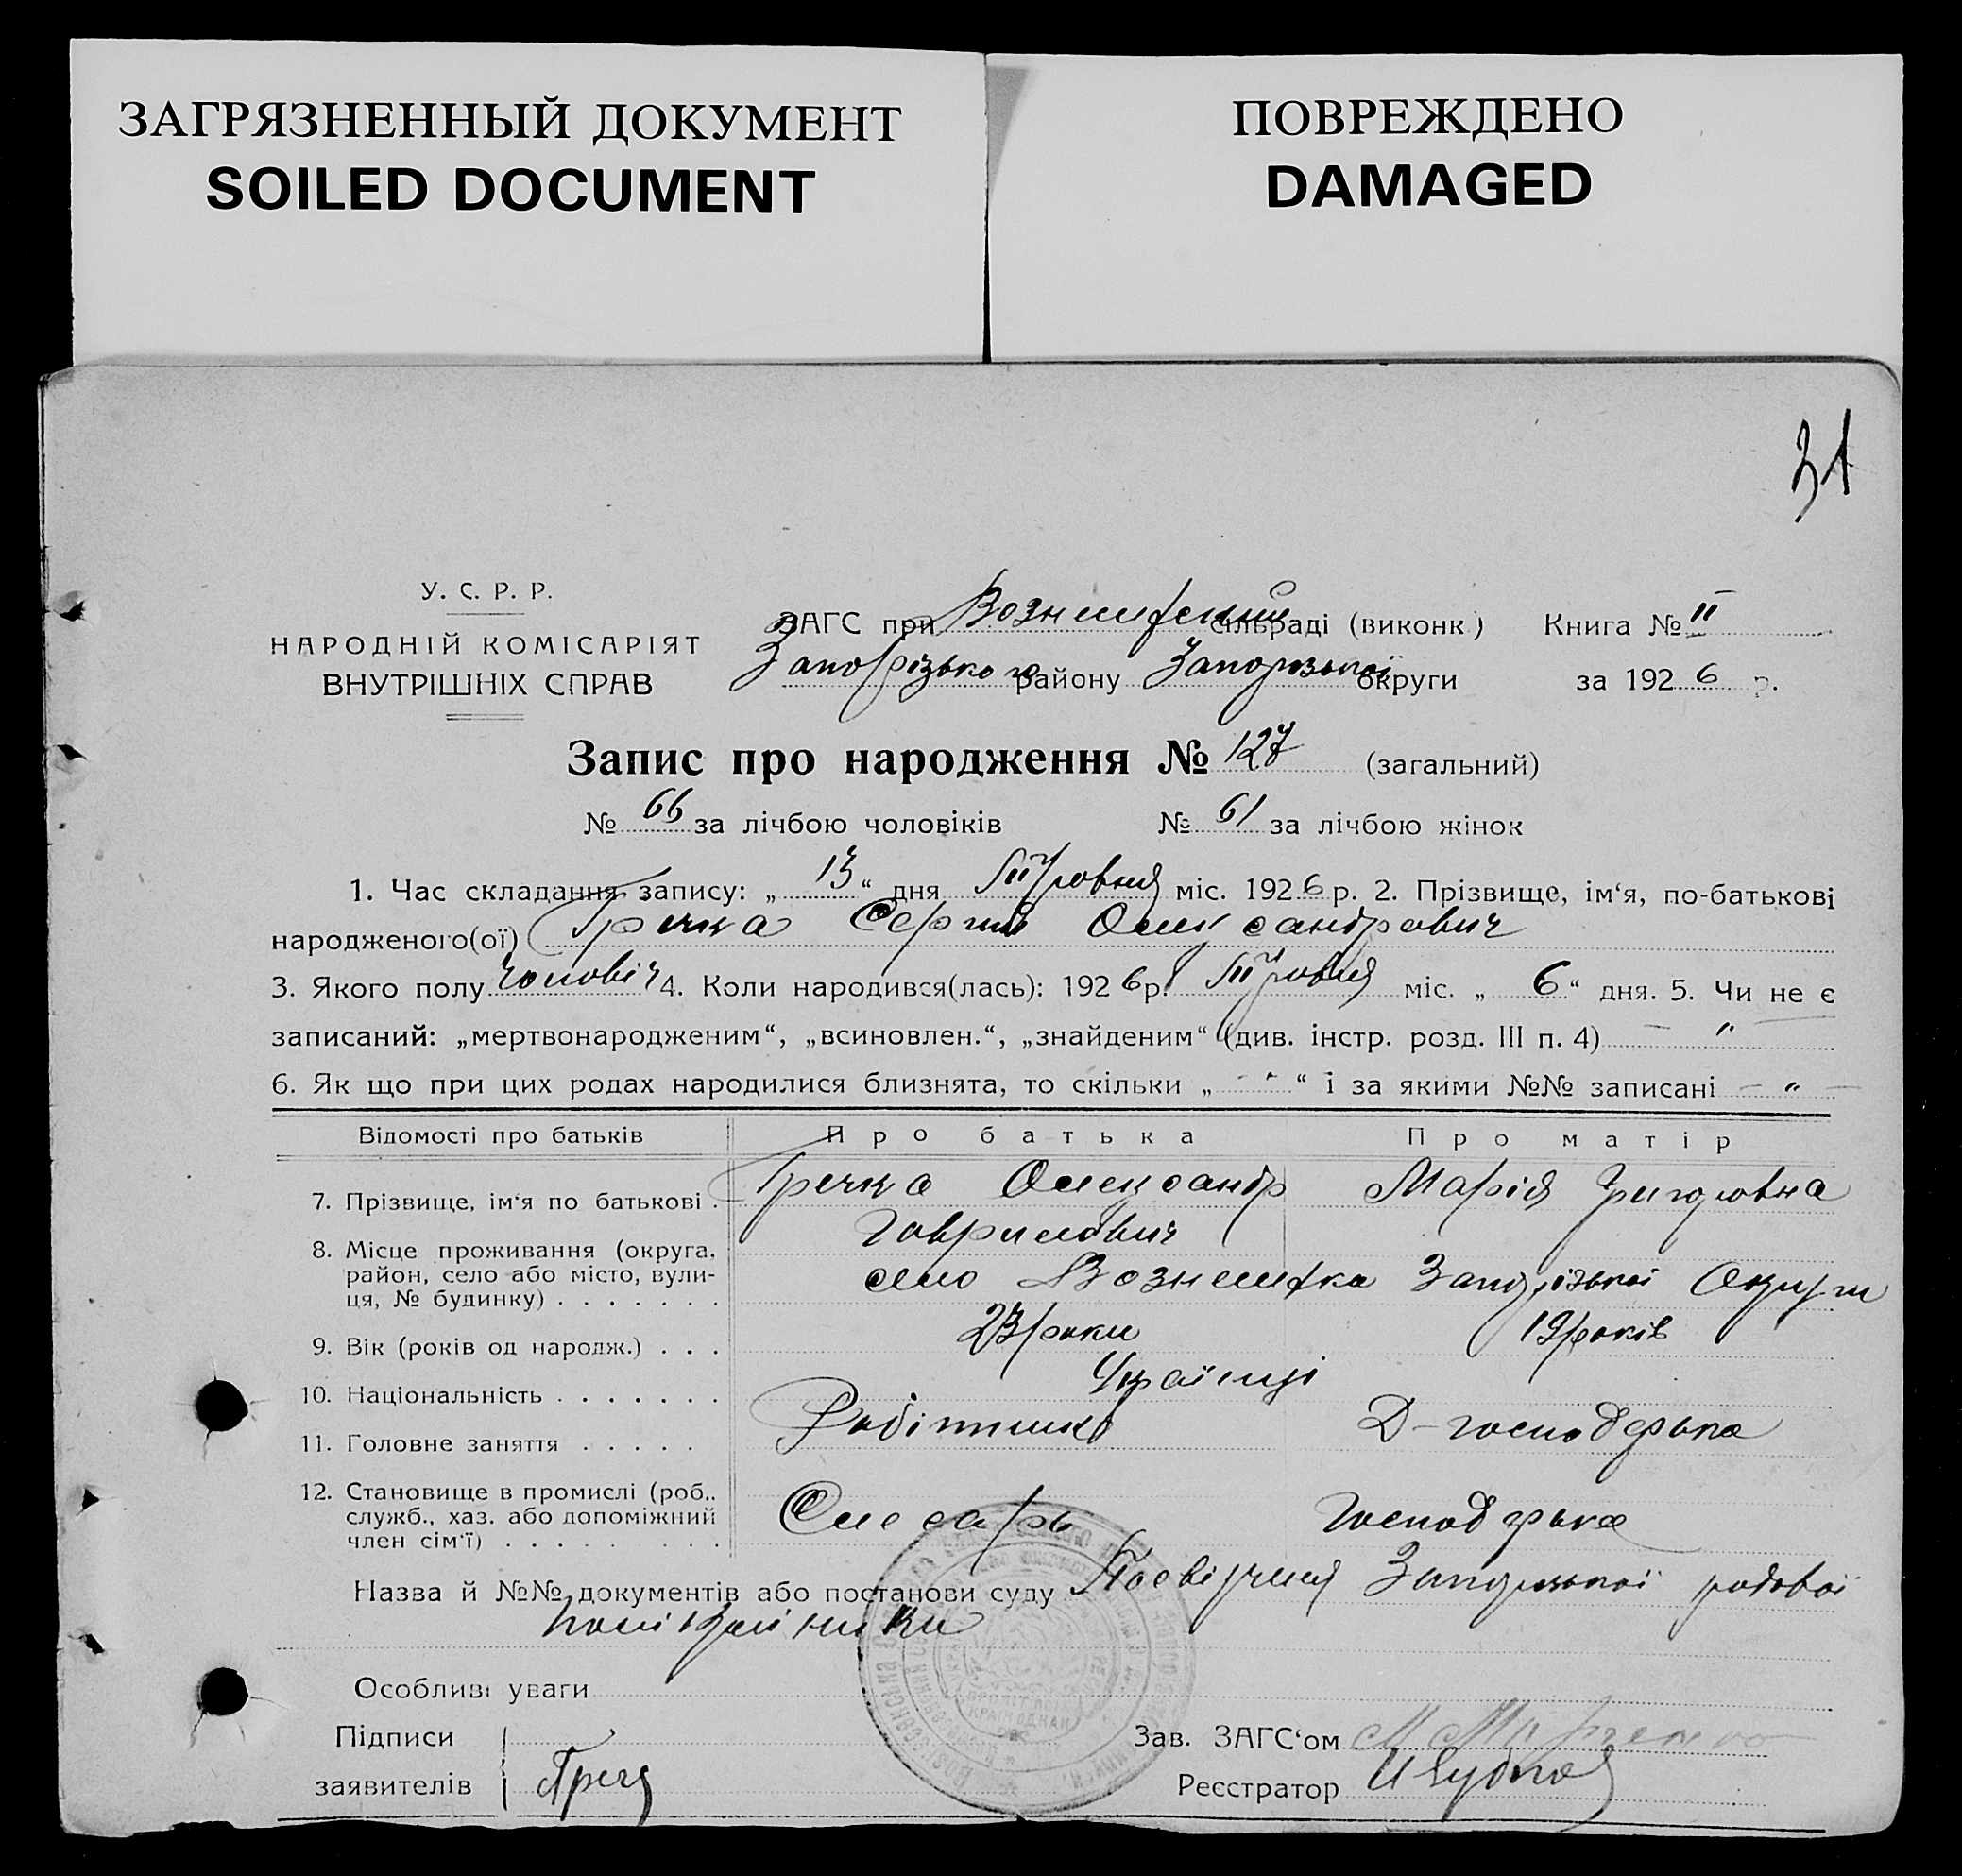 ЗАГРЯЗНЕННЫЙ ДОКУМЕНТ
SOILED DOCUMENT
ПОВРЕЖДЕНО
DAMAGED
31
У. С. Р. Р.
НАРОДНІЙ КОМІСАРІЯТ
ВНУТРІШНІХ СПРАВ
ЗАГС при сільраді (виконк) Книга № II
Запорізького району Запорізької округи за 1926 р.
Запис про народження № 127 (загальний)
№ 66 за лічбою чоловіків № 61 за лічбою жінок
1. Час складання запису: „ 13 “ дня міс. 1926 р. 2. Прізвище, ім‘я, по-батькові
народженого(ої) Гречка Сергій Олександрович
3. Якого полу чоловіч 4. Коли народився(лась): 1926 р. міс. „ 6 “ дня. 5. Чи не є
записаний: „мертвонародженим“, „всиновлен.“, „знайденим“ (див. інстр. розд. III п. 4) — „
6. Як що при цих родах народилися близнята, то скільки „ - “ - “ і за якими №№ записані — „ —
Відомості про батьків Про батька Про матір
7. Прізвище, ім‘я по батькові . Гречка Олександр Марія Григоровна
Гаврилович
8. Місце проживання (округа, район, село або місто, вули-
ця, № будинку) . . . . . . . село Вознесенка Запорізької Округи
9. Вік (років од народж.) . . . 23 роки 19 років
10. Національність . . . . . . . Українці
11. Головне заняття . . . . . Робітник Д-господарька
12. Становище в промислі (роб.,
служб., хаз. або допоміжний
член сім‘ї) . . . . . . . . Слесарь Господарька
Назва й №№ документів або постанови суду Посвідчення Запорізької
Особливі уваги
Підписи
заявителів Греч
Зав. ЗАГС‘ом
Реєстратор